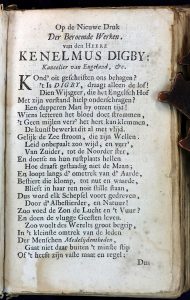 Op de Nieuwe Druk
Der Beroemde Werken,
van den HEERE
KENELMUS DIGBY:
Kancelier van Engeland, &c.
KOnd' oit geschriften ons behagen?
't Is DIGBY, draagt alleen de lof!
Dien Wijsgeer, die het Engelsch Hof
Met zijn verstand hielp onderschragen?
Een dapperen Mart by onzen tijd!
Wiens letteren het bloed doet stremmen,
't Geen mijlen verr' het hert kan klemmen,
De kunst bewerkt dit al met vlijd.
Gelijk de Zee stroom, die zijn Wellen
Leid onbepaalt zoo wijd, en verr',
Van Zuider, tot de Noorder sterr,
En doense na hun rustplaets hellen
Hoe draait gestaadig niet de Maan;
En loopt langs d' omtrek van d' Aarde.
Bestiert die klomp, tot nut en waarde,
Blieft in haar ren noit stille staan,
Dus word elk Schepsel voort gedreven,
Door d' Albestierder, en Natuur!
Zoo voed de Zon de Lucht en 't Vuur?
En doen de vlugge Geesten leven.
Zoo woelt des Werelts groot begrip,
In 't kleinste omtrek van de leden
Der Menschen Medelydenheden,
Gaat niet daar buiten 't minste stip
Of 't heeft zijn vaste maat en regel;
Dus